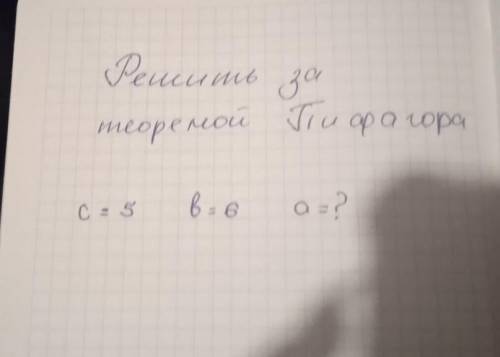 Решить за
теоремой Пифагора
c = 5 в = 6 a = ?